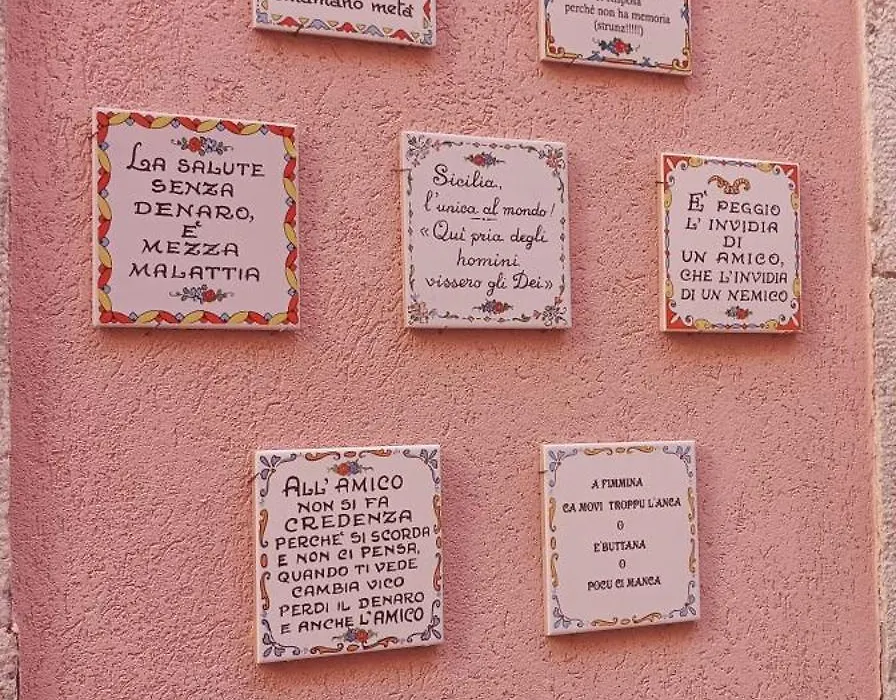 metà
risposa
perché non ha memoria
(strunz!!!!!)
LA SALUTE
SENZA
DENARO,
E'
MEZZA
MALATTIA
Sicilia,
l'unica al mondo!
«Qui pria degli
homini
vissero gli Dei»
E' PEGGIO
L' INVIDIA
DI
UN AMICO,
CHE L'INVIDIA
DI UN NEMICO
ALL' AMICO
NON SI FA
CREDENZA
PERCHE' SI SCORDA
E NON CI PENSA,
QUANDO TI VEDE
CAMBIA VICO
PERDI IL DENARO
E ANCHE L'AMICO
A FIMMINA
CA MOVI TROPPU L'ANCA
O
E'BUTTANA
O
POCU CI MANCA